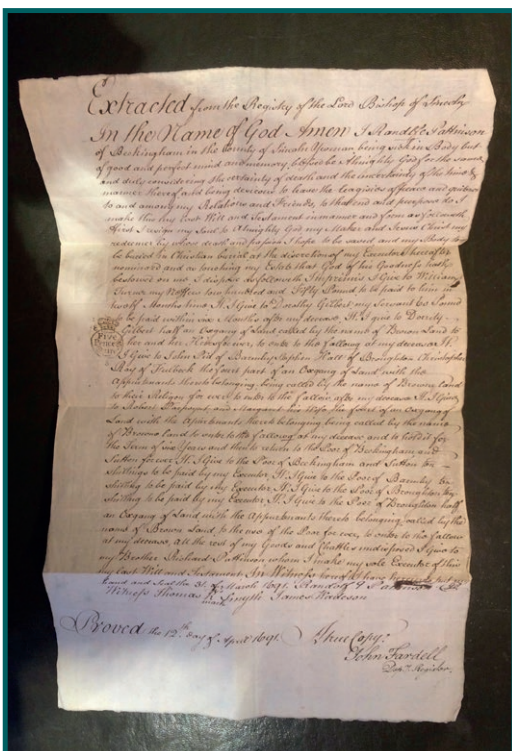 Extracted from the Registry of the Lord Bishop of Lincoln
In the Name of God Amen I Randle Pattinson
of Beckingham in the County of Lincoln Yeoman being sick in Body but
of good and perfect mind and memory, blessed be Almighty God for the same
and duly considering the certainty of death and the uncertainty of the time &
manner thereof and being desirous to leave the Legacies of peace and quietness
to and among my Relations and Friends, to that end and purpose do I
make this my Last Will and Testament in manner and form as followeth
First I resign my Soul to Almighty God my Maker and Jesus Christ my
redeemer by whose death and passion I hope to be saved and my Body to
be buried in Christian burial at the discretion of my Executor hereafter
nominated and as touching my Estate that God of his Goodness hath
bestowed on me I dispose as followeth Imprimis I Give to William
my two hundred and Fifty Pound to be paid to him in
twelf Months time It. I Give to Dorothy Gilbert my Servant 60 Pound
to be paid within six Months after my decease It. I give to Doroty
Gilbert half an Oxgang of Land called by the name of Brown Land to
her and her Heirs for ever to enter to the fallow at my decease It.
I Give to John Pid of Barnby Stephen Hall of Broughton Christopher
May of Fulbeck the fourt part of an Oxgang of Land with the
Appurtenants thereto belonging being called by the name of Browns land
to their Religon for ever to enter to the fallow after my decease It. I Give
to Robert Pierpoynt and Margaret his Wife the fourt of an Oxgang of
Land with the Appurtenants thereto belonging being called by the name
of Browns land to enter to the fallow at my decease, and to hold it for
the Term of six Years and then to return to the Poor of Beckingham and
Sutton for ever It. I Give to the Poor of Beckingham and Sutton ten
shillings to be paid by my Executor It. I Give to the Poor of Barnby ten
shilling to be paid by my Executor It. I Give to the Poor of Broughton ten
shilling to be paid by my Executor It. I Give to the Poor of Broughton half
an Oxgang of Land with the Appurtenants thereto belonging called by the
name of Brown Land to the use of the Poor for ever, to enter to the fallow
at my decease, all the rest of my Goods and Chattles undisposed I give to
my Brother Richard Pattinson whom I make my sole Executor of this
my Last Will and Testament In Witness hereof I have hereunto put my
hand and Seal the of March 1691. Randolf
Witness Thomas Smyth James
mark
Proved the 12th day of April 1691.
A true Copy:
John Fardell
Depy. Register
FIVE